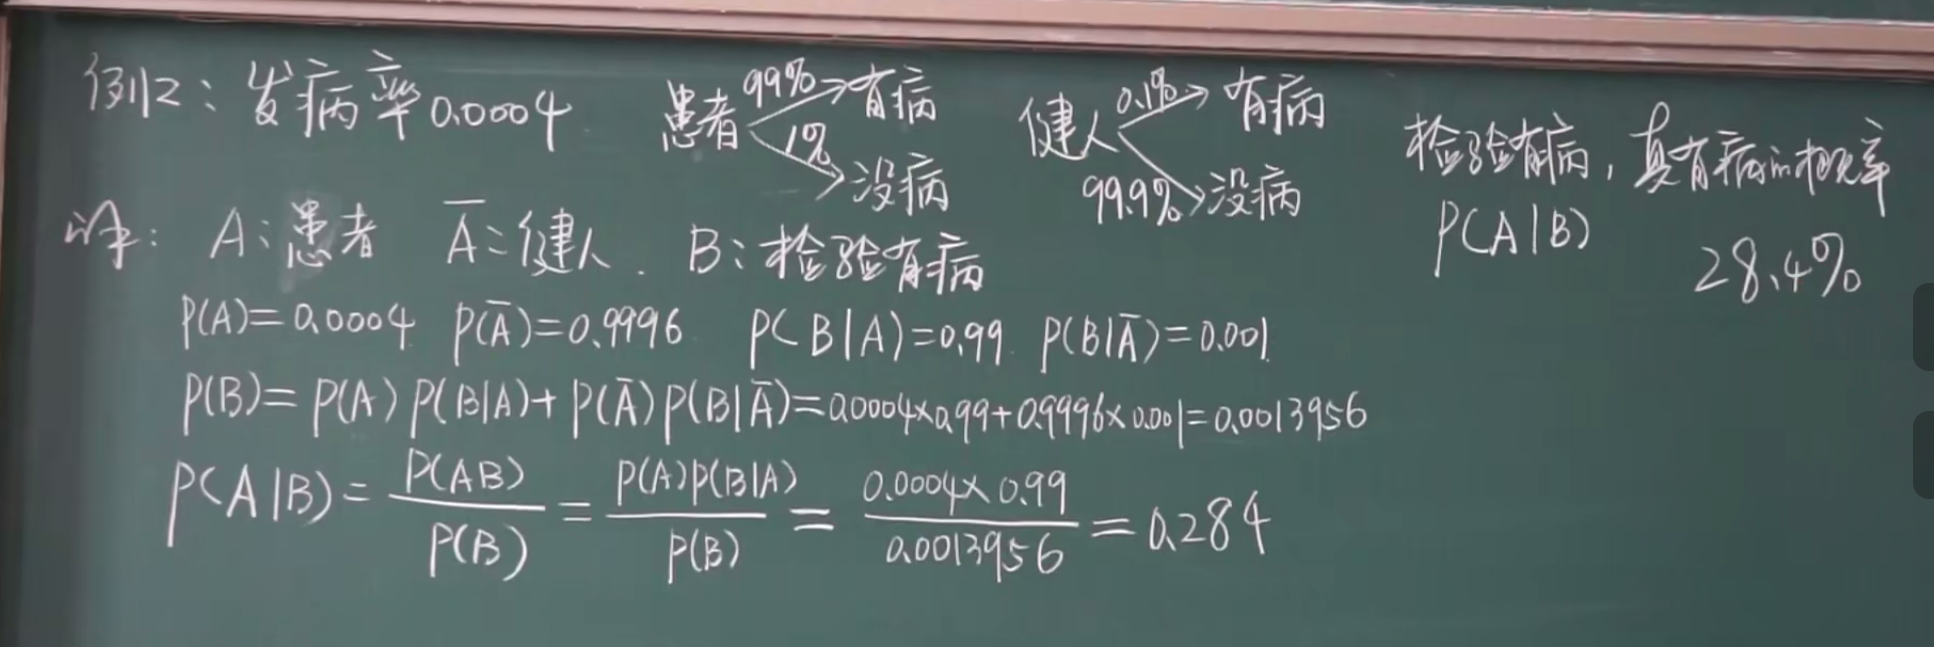 例12：发病率0.0004 患者 99% 有病 1% 没病 健人 0.1% 有病 99.9% 没病 检验有病，真有病的概率
P(A|B) 28.4%
解： A：患者 Ā：健人. B：检验有病
P(A)=0.0004 P(Ā)=0.9996 P(B|A)=0.99 P(B|Ā)=0.001
P(B)=P(A)P(B|A)+P(Ā)P(B|Ā)=0.0004×0.99+0.9996×0.001=0.0013956
P(A|B)=P(AB)/P(B)=P(A)P(B|A)/P(B)=0.0004×0.99/0.0013956=0.284